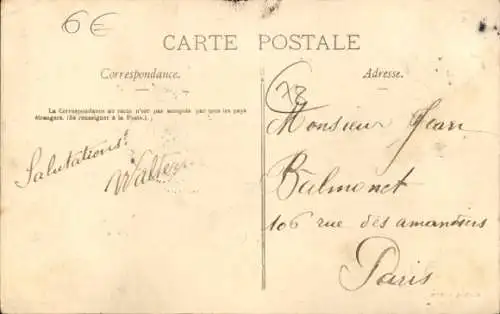 6€
CARTE POSTALE
Correspondance.
La Correspondance au recto n'est pas acceptée par tous les pays
étrangers. (Se renseigner à la Poste.)
Salutations.
Walter
Adresse.
73
Monsieur Jean
Balmonet
106 rue des amandiers
Paris